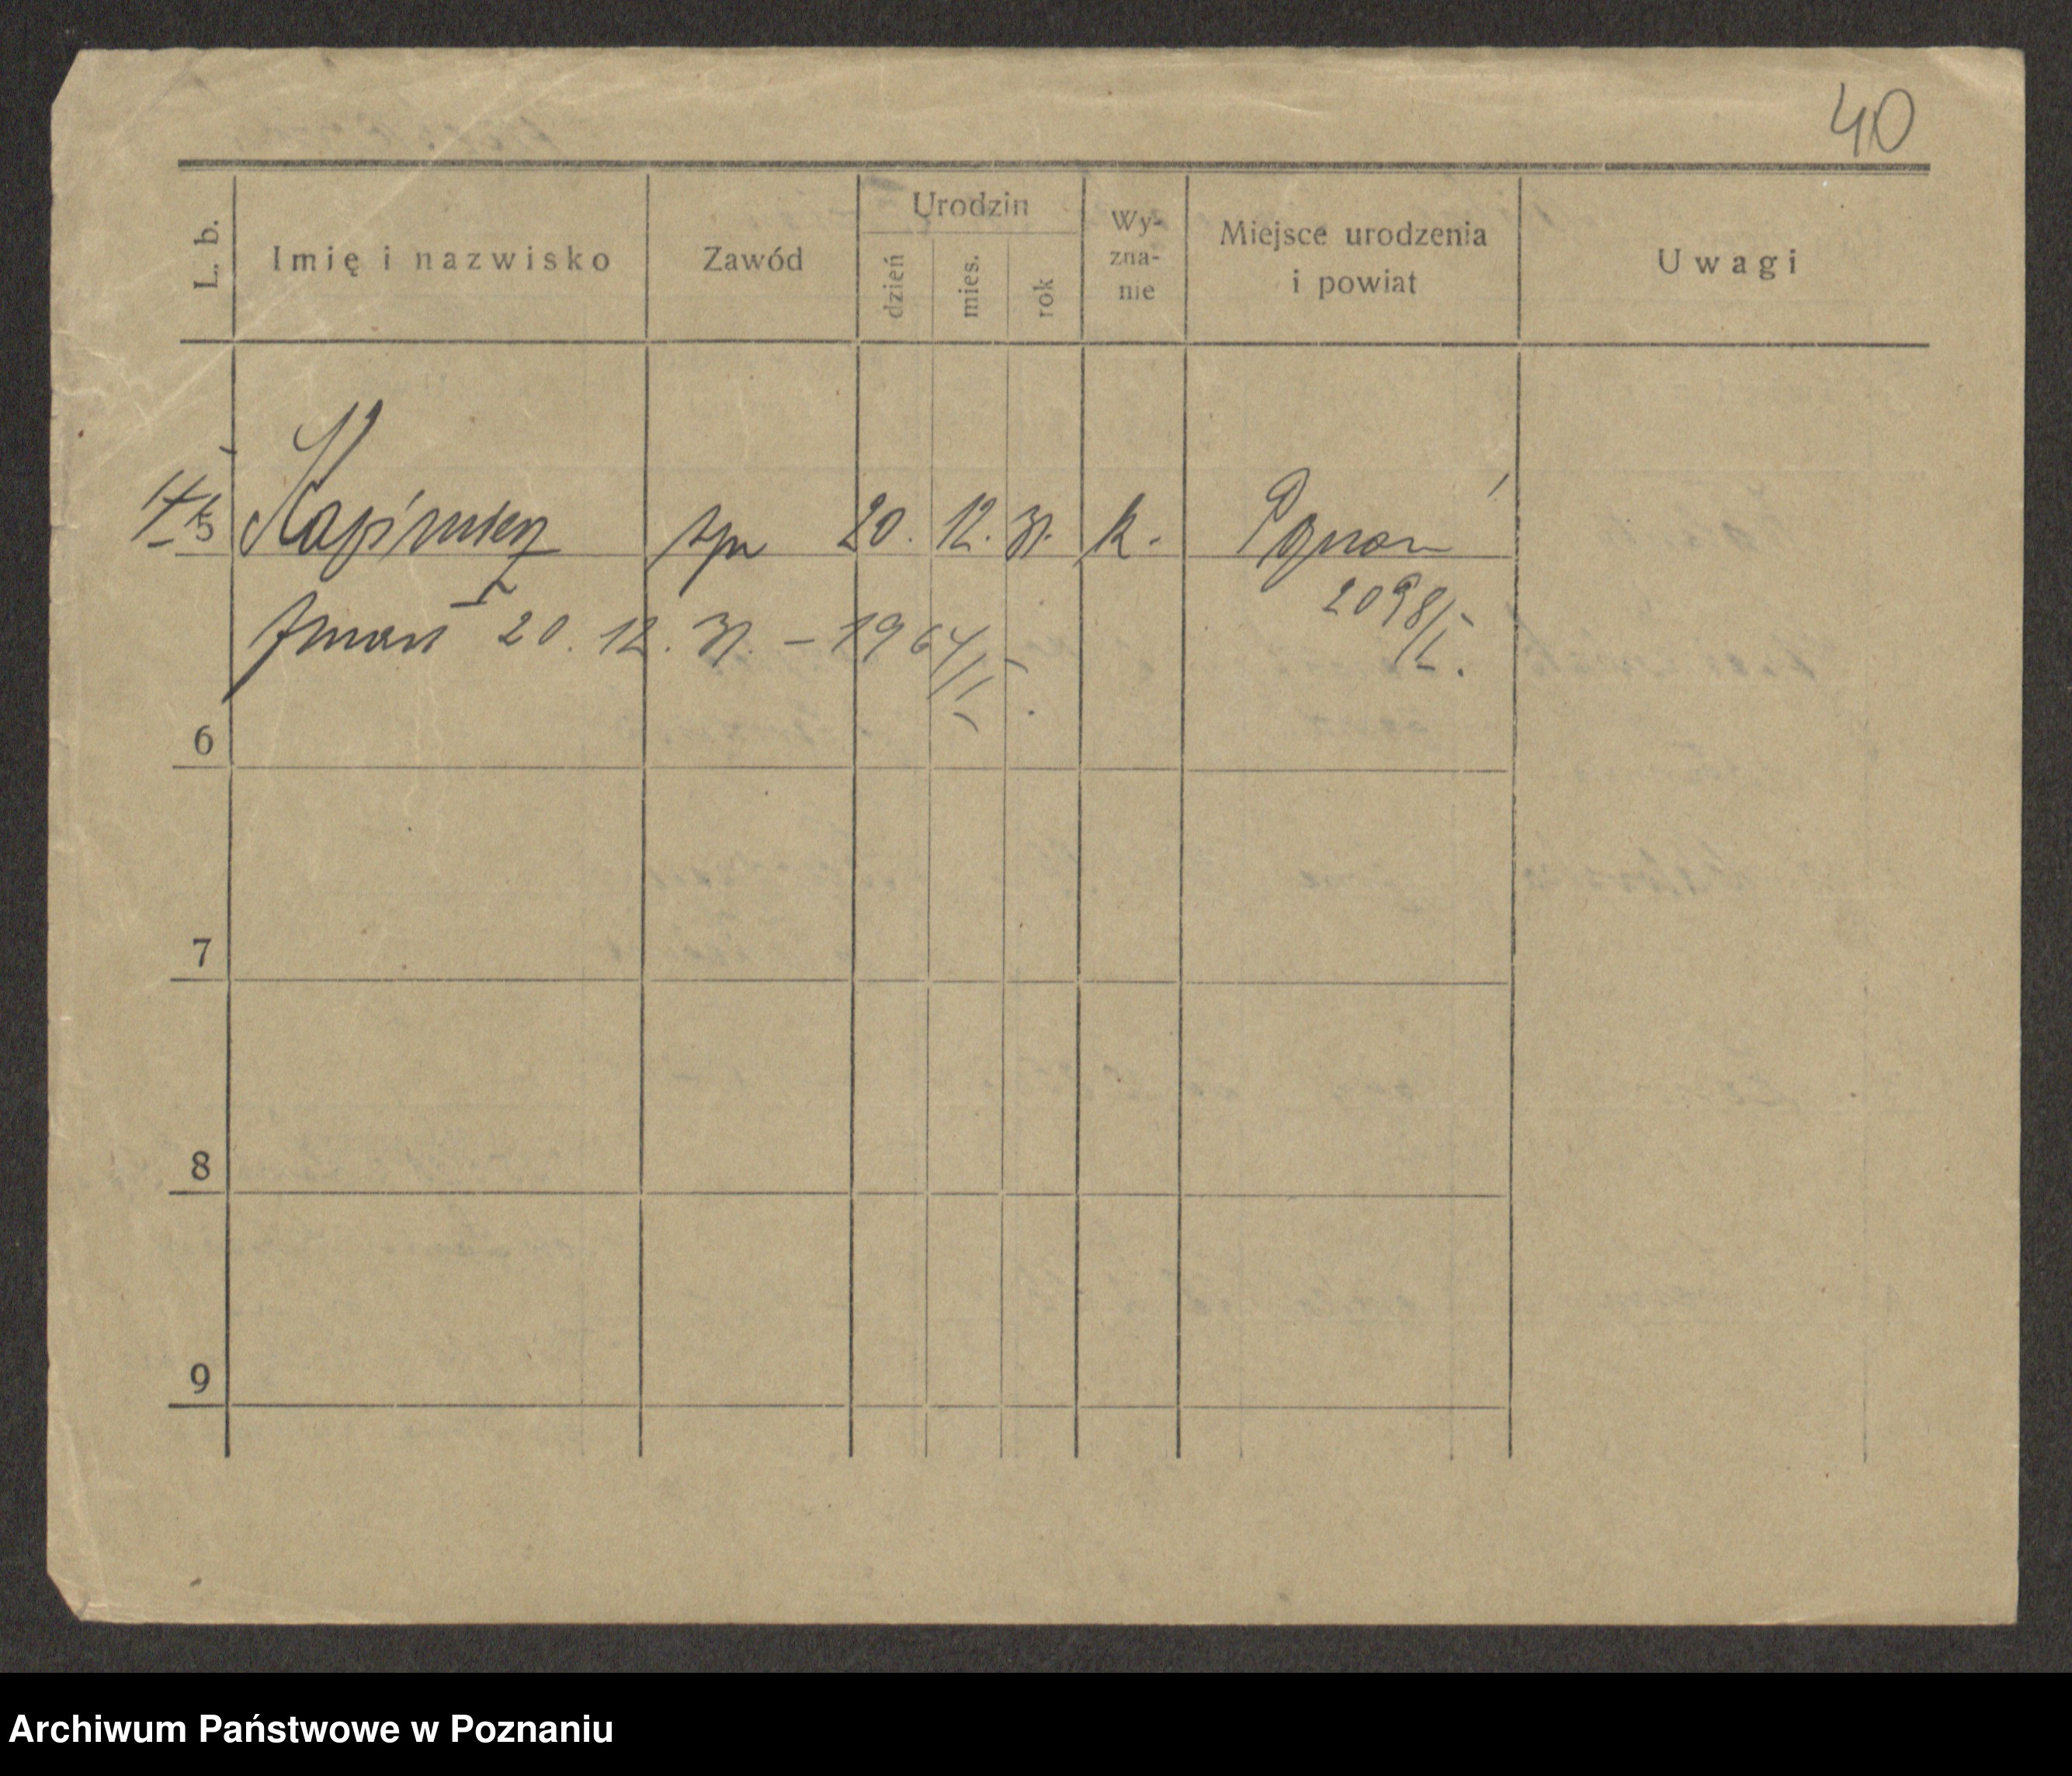 40
L. b.
Imię i nazwisko
Zawód
Urodzin
dzień
mies.
rok
Wy-
zna-
nie
Miejsce urodzenia
i powiat
Uwagi
5 Kazimierz syn 20. 12. 31. k. Poznań
zmarł 20. 12. 31. – 1964/II. 2098/I.
6
7
8
9
Archiwum Państwowe w Poznaniu